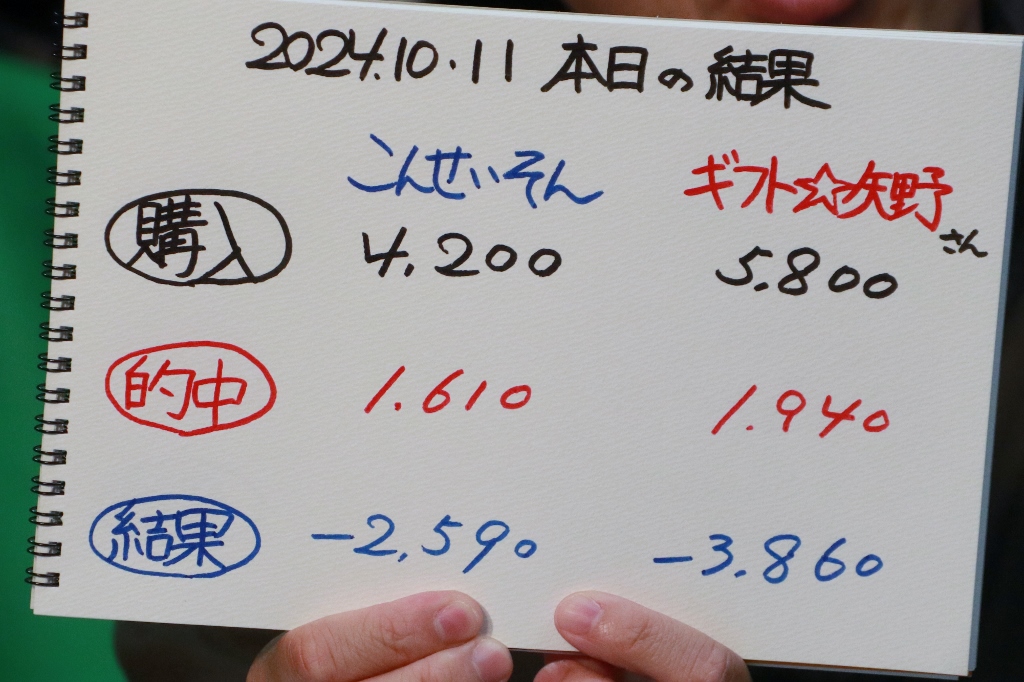 2024.10.11 本日の結果
こんせいそん ギフト☆矢野さん
購入 4,200 5,800
的中 1,610 1,940
結果 -2,590 -3,860